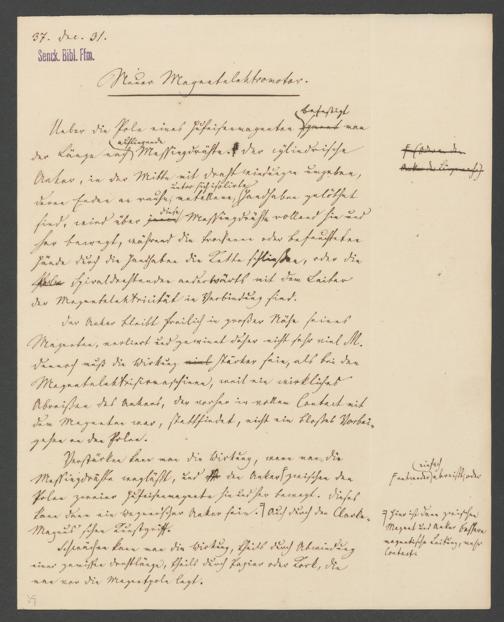 37. Dec. 31.
Senck. Bibl. Ffm.
Neuer Magnetelektromotor.
Ueber die Pole eines Hufeisenmagneten befestigt man
der Länge nach Messingdrähte. der cylindrische
Anker, in der Mitte mit Draht umgeben,
deren Enden an Handhaben gelöthet
sind, wird über diese Messingdrähte rollend hin und
her bewegt, während die trockenen oder befeuchteten
Hände durch die Handhaben die Kette schließen, oder die
Spiraldrahtenden anderwärts mit dem Leiter
der Magnetelektricität in Verbindung sind.
Der Anker bleibt freilich in großer Nähe seines
Magneten, verliert und gewinnt daher nicht sehr viel M.
dennoch muß die Wirkung stärker sein, als bei den
Magnetelektrisirmaschinen, weil ein wirkliches
Abreißen des Ankers, der vorher in vollem Contact mit
dem Magneten war, stattfindet, nicht ein bloßes Vorbei-
gehen an den Polen.
Verstärken kann man die Wirkung, wenn man die
Messingdrähte wegläßt, und den Anker zwischen den
Polen zweier Hufeisenmagnete hin und her bewegt. Dieses
kann dann ein Wagnerischer Anker sein. Auch durch den Clarke-
Magnus'schen Kunstgriff.
Schwächen kann man die Wirkung, theils durch Abwindung
einer gewissen Drahtlänge, theils durch Papier oder Kork, die
man vor die Magnetpole legt.
einfach
oder
Hier ist dann zwischen
Magnet und Anker bessere
magnetische Leitung, mehr
Contact.